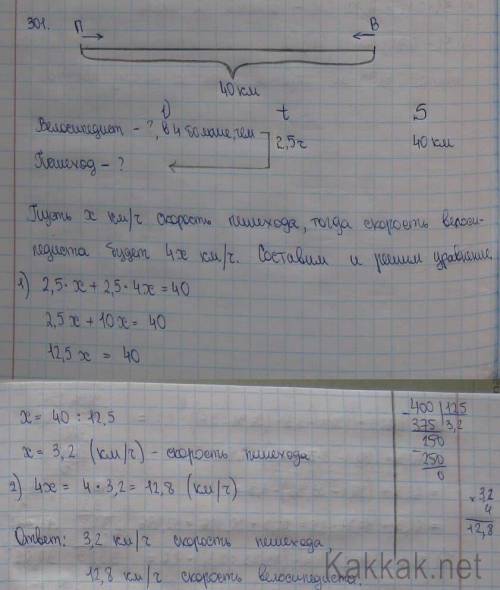 301. П В
40 км
v t S
Велосипедист - ?, в 4 больше, чем 2,5ч 40 км
Пешеход - ?
Пусть х км/ч скорость пешехода, тогда скорость велоси-
педиста будет 4х км/ч. Составим и решим уравнение.
1) 2,5·х + 2,5·4х = 40
2,5х + 10х = 40
12,5х = 40
х = 40 : 12,5
х = 3,2 (км/ч) - скорость пешехода
2) 4х = 4·3,2 = 12,8 (км/ч)
Ответ: 3,2 км/ч скорость пешехода,
12,8 км/ч скорость велосипедиста.
- 400 | 125
375 | 3,2
- 250
250
0
× 3,2
4
12,8
Kakkak.net